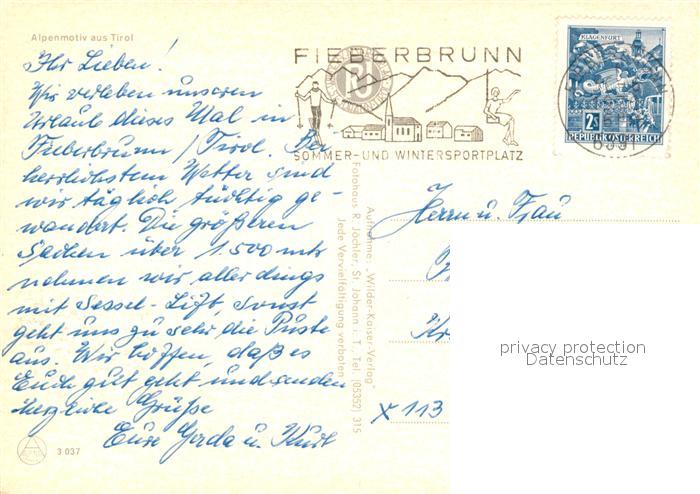 Alpenmotiv aus Tirol
Ihr Lieben!
Wir verleben unseren
Urlaub dieses Mal in
Fieberbrunn / Tirol. Bei
herrlichstem Wetter sind
wir täglich tüchtig ge-
wandert. Die größeren
Sachen über 1.500 mtr
nehmen wir allerdings
mit Sessel-Lift, sonst
geht uns zu sehr die Puste
aus. Wir hoffen, daß es
Euch gut geht und senden
herzliche Grüße
Eure Gerda u. Kurt
3 037
FIEBERBRUNN
SOMMER- UND WINTERSPORTPLATZ
KLAGENFURT
2S
REPUBLIK ÖSTERREICH
6391
Aufnahme: „Wilder-Kaiser-Verlag"
Fotohaus R. Jöchler, St. Johann i. T., Tel. (05352) 315
Jede Vervielfältigung verboten
Herrn u. Frau
x 113
privacy protection
Datenschutz